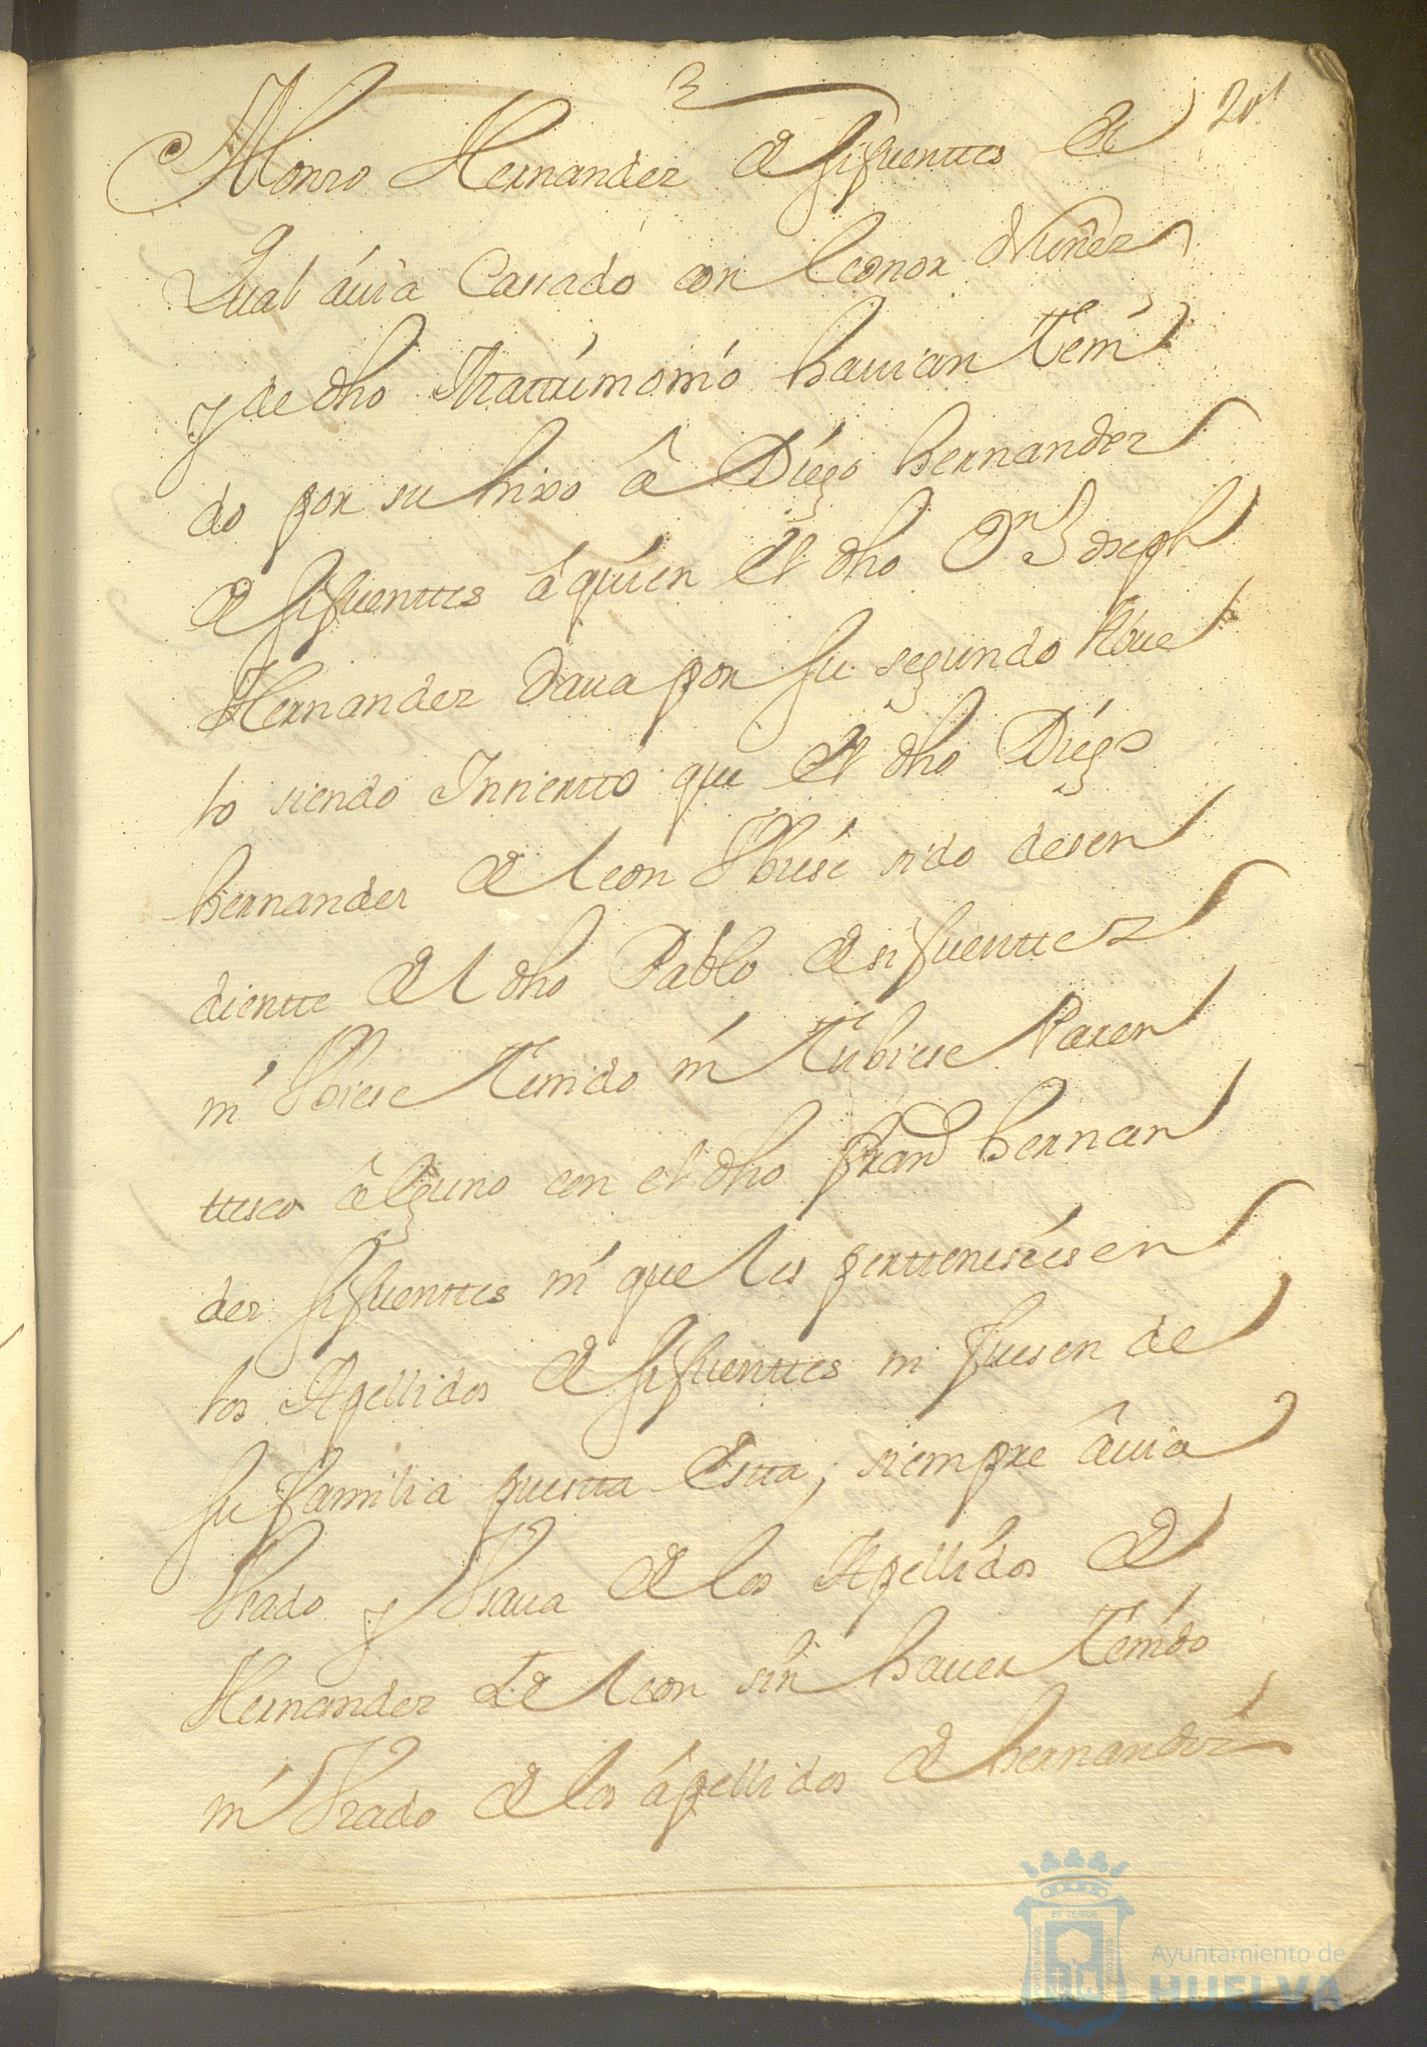 201
Alonso Hernandez de sifuenttes el
Qual avia Cassado con leonor Nuñez
y de dho Mattrimonio havian teni
do por su hixo â Diego hernandez
de sifuenttes â quien el dho Dn Joseph
Hernandez dava por su segundo Abue
lo siendo Insiertto que el dho Diego
hernandez de leon Vbiese sido desen
diente del dho Pablo de sifuenttez
ni Vbiese tenido ni tubiese Paren
ttesco âlguno con el dho fran.co hernan
dez sifuenttes ni que les perttenesiesen
los Apellidos de sifuenttes ni fuesen de
su familia puestta estta, siempre âvia
Vsado y Vsava de los Apellidos de
Hernandez de leon sin haver tenido
ni Vsado de los ápellidos de hernandez
Ayuntamiento de
HUELVA